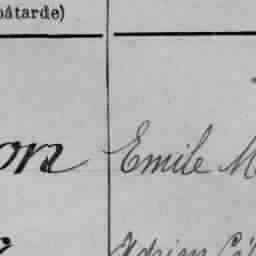 bâtarde)
on Emile M
Adrien Cé